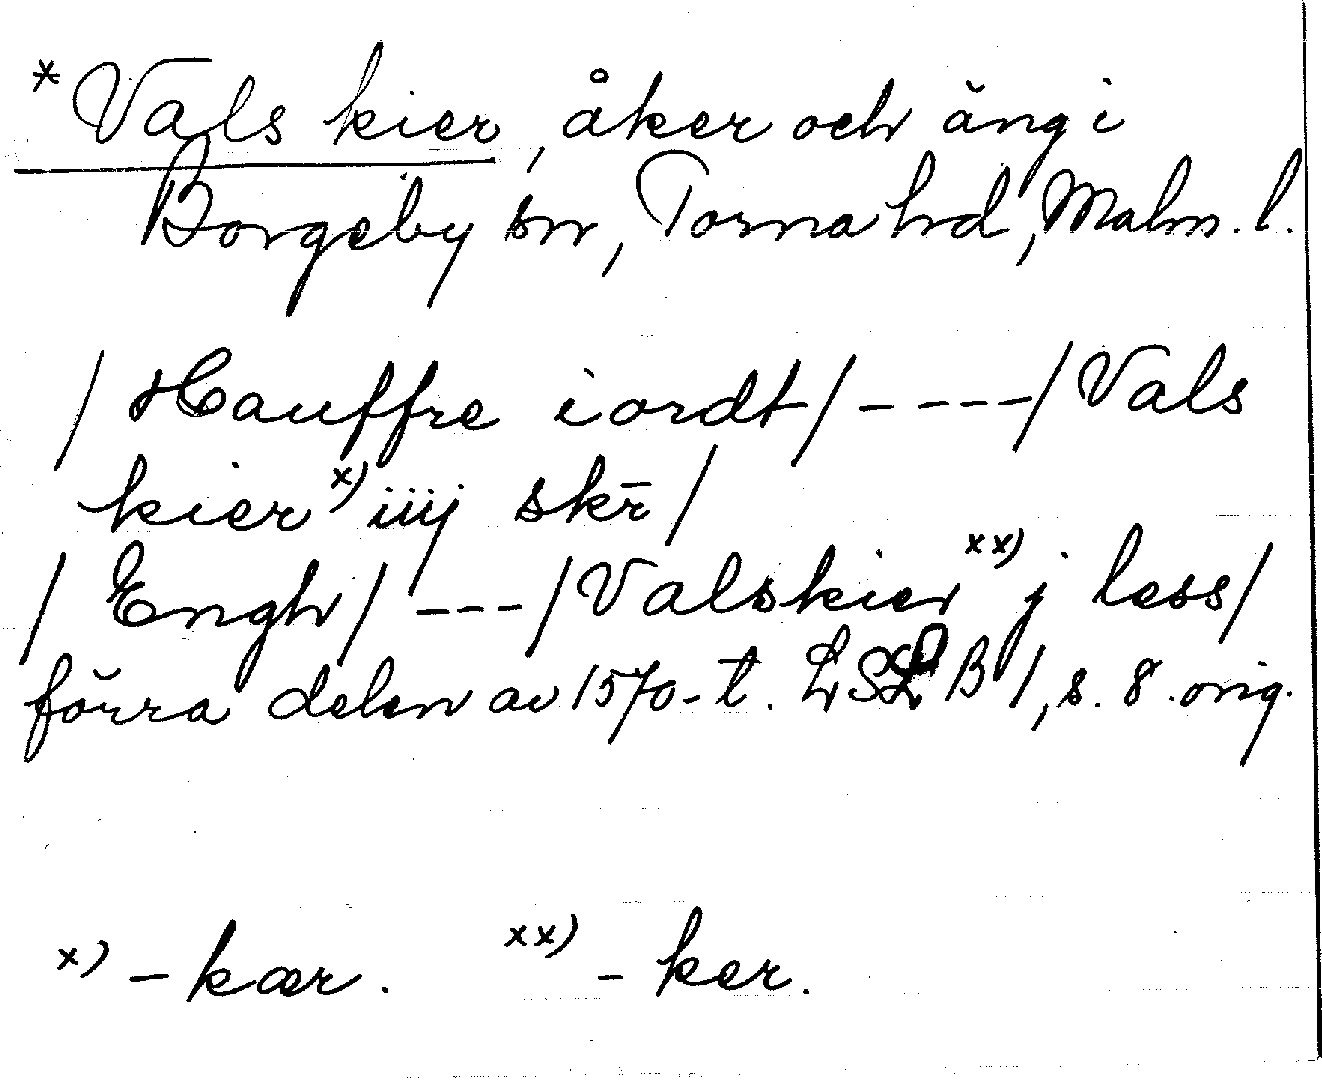 *Vals kier, åker och äng i
Borgeby sn, Torna hd, Malm. l.
/ Hauffre iordt / ---- / Vals
kier x) iiij skr̄ /
/ Engh / --- / Valskier xx) j less /
förra delen av 1570-t. LSLB 1, s. 8. orig.
x) - kær. xx) - ker.